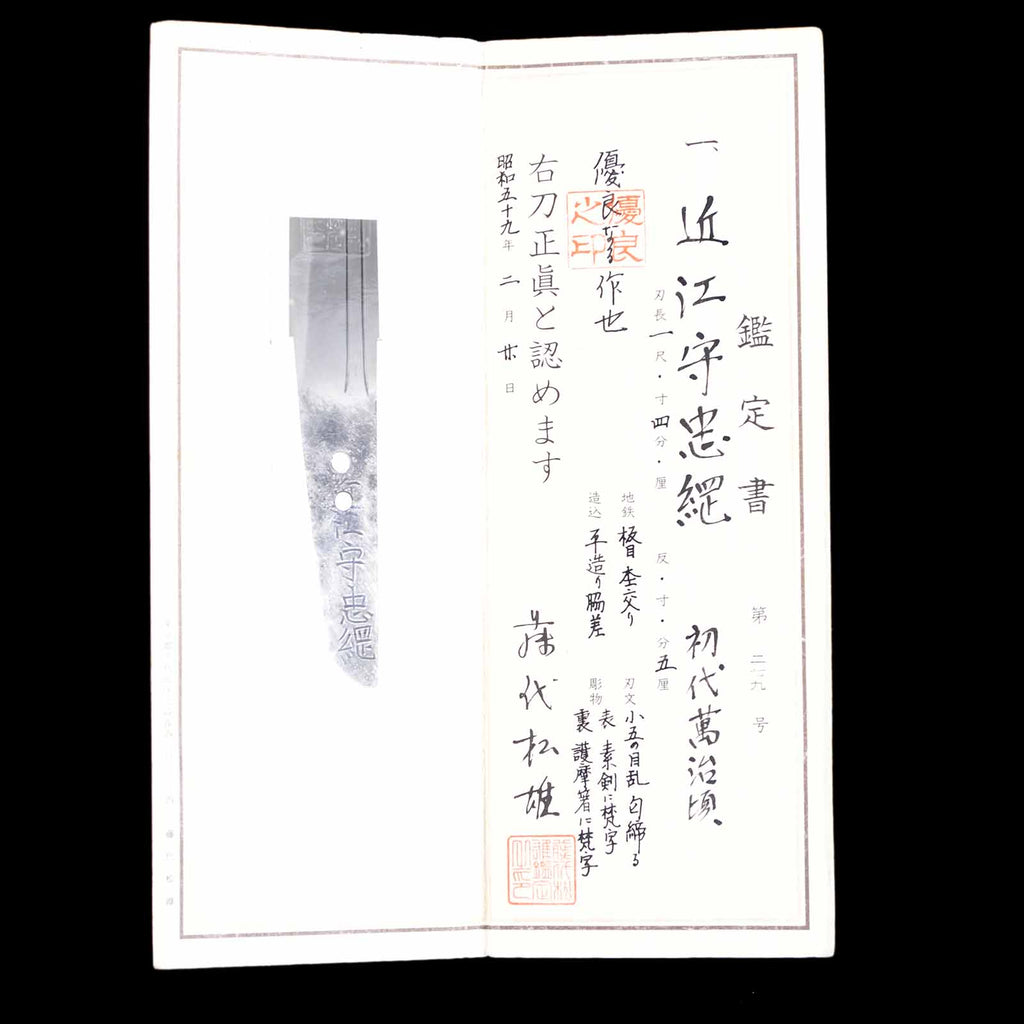 鑑定書
第二六九号
一、近江守忠綱 初代萬治頃、
刃長一尺・寸四分・厘 反・寸・分五厘
地鉄 板目杢交り
刃文 小五の目乱匂締る
造込 平造り脇差
彫物 表 素剣に梵字
裏 護摩箸に梵字
優良なる作也
優良之印
右刀正眞と認めます
藤代松雄
昭和五十九年二月廿日
近江守忠綱